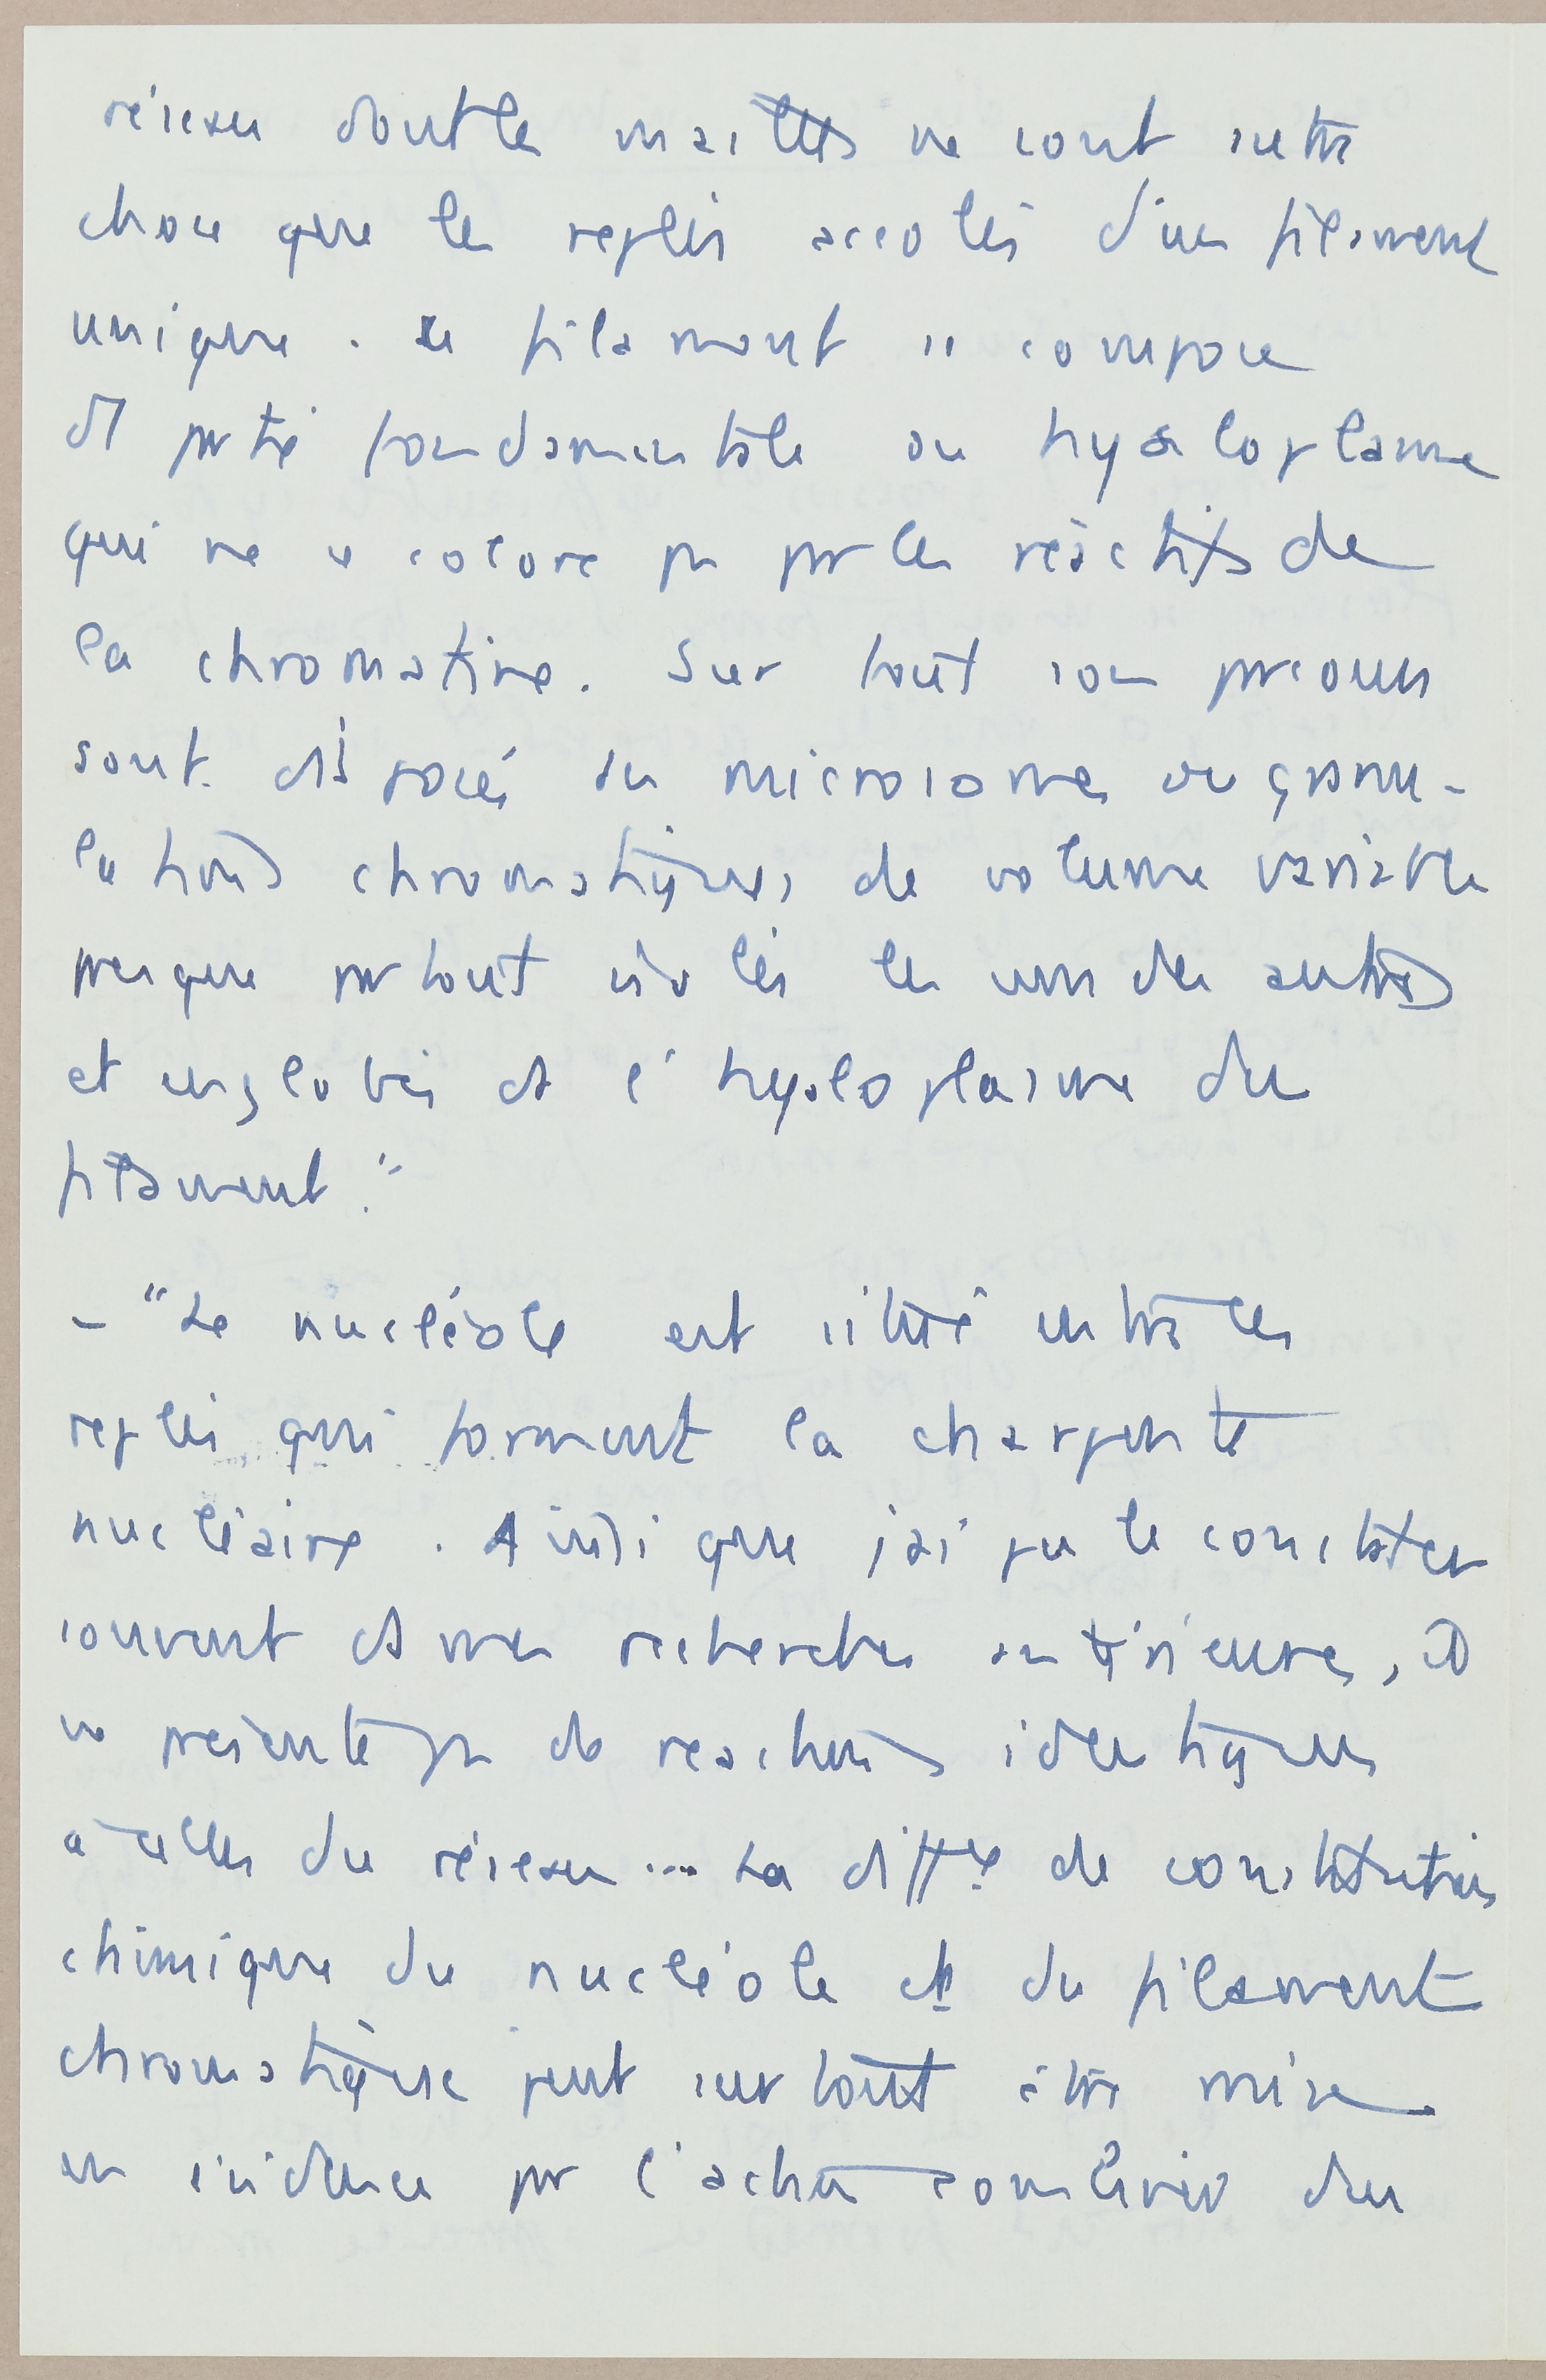 réseau dont les mailles ne sont autre
chose que les replis accolés d'un filament
unique. Le filament se compose
d1 partie fondamentale ou hyaloplasme
qui ne se colore pas par les réactifs de
la chromatine. Sur tout son parcours
sont disposés des microsomes ou granu-
lations chromatiques de volume variable
presque partout isolés les uns des autres
et englobés ds l'hyaloplasme du
filament."
- "Le nucléole est situé entre les
replis qui forment la charpente
nucléaire. Ainsi que j'ai pu le constater
souvent ds mes recherches antérieures, il
ne présente pas de réactions identiques
à celles du réseau... La diffce de constitution
chimique du nucléole et du filament
chromatique peut surtout être mise
en évidence par l'action combinée des